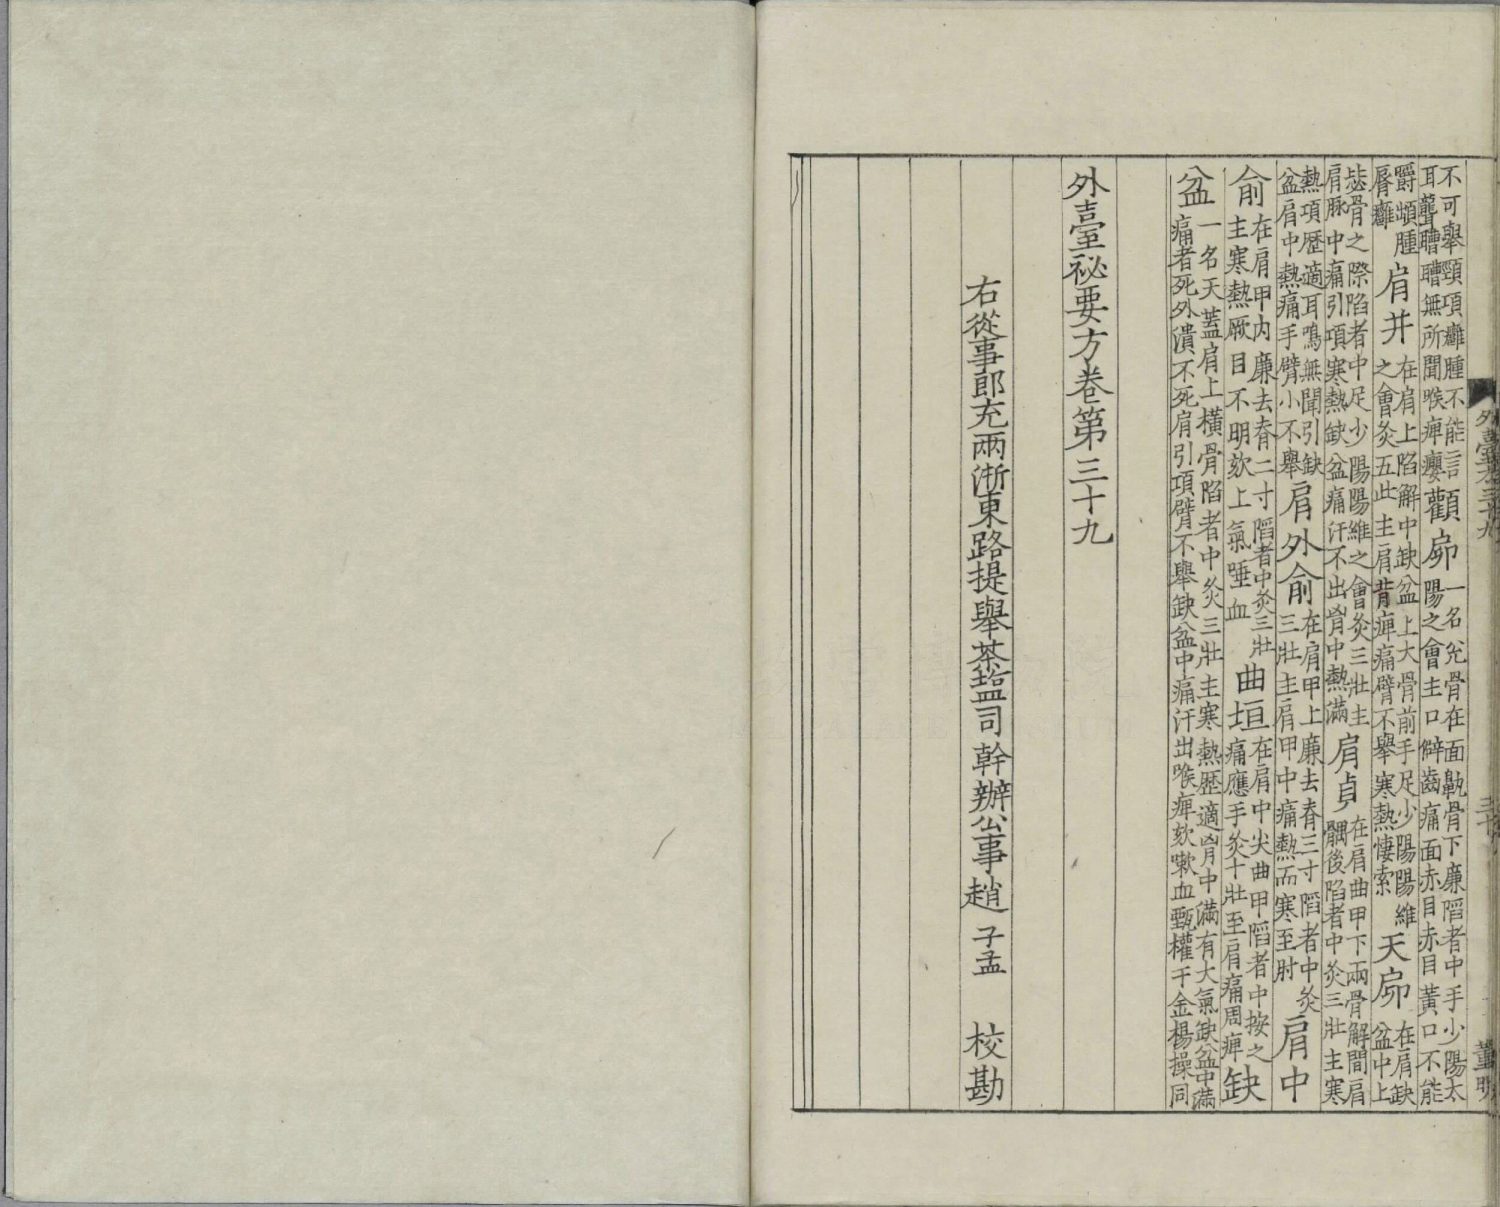 不可舉頸項癰腫不能言
耳聾䎱䎱無所聞喉痺癭
顴窌
一名兊骨在面鼽骨下廉陷者中手少陽太
陽之會主口僻齒痛面赤目赤目黃口不能
嚼䪼腫
脣癰
肩井
在肩上陷解中缺盆上大骨前手足少陽陽維
之會灸五此主肩背痺痛臂不舉寒熱悽索
天窌
在肩缺
盆中上
毖骨之際陷者中足少陽陽維之會灸三壯主
肩脉中痛引項寒熱缺盆痛汗不出胷中熱滿
肩貞
在肩曲甲下兩骨解間肩
髃後陷者中灸三壯主寒
熱項歷適耳鳴無聞引缺
盆肩中熱痛手臂小不舉
肩外俞
在肩甲上廉去脊三寸陷者中灸
三壯主肩甲中痛熱而寒至肘
肩中
俞
在肩甲内廉去脊二寸陷者中灸三壯
主寒熱厥目不明欬上氣唾血
曲垣
在肩中尖曲甲陷者中按之
痛應手灸十壯至肩痛周痺
缺
盆
一名天蓋肩上横骨陷者中灸三壯主寒熱歷適胷中滿有大氣缺盆中滿
痛者死外潰不死肩引項臂不舉缺盆中痛汗出喉痺欬嗽血甄權千金楊操同
外臺祕要方卷第三十九
右從事郎充兩浙東路提舉茶鹽司幹辦公事趙 子孟 校勘
外臺方三十九
三十
董明